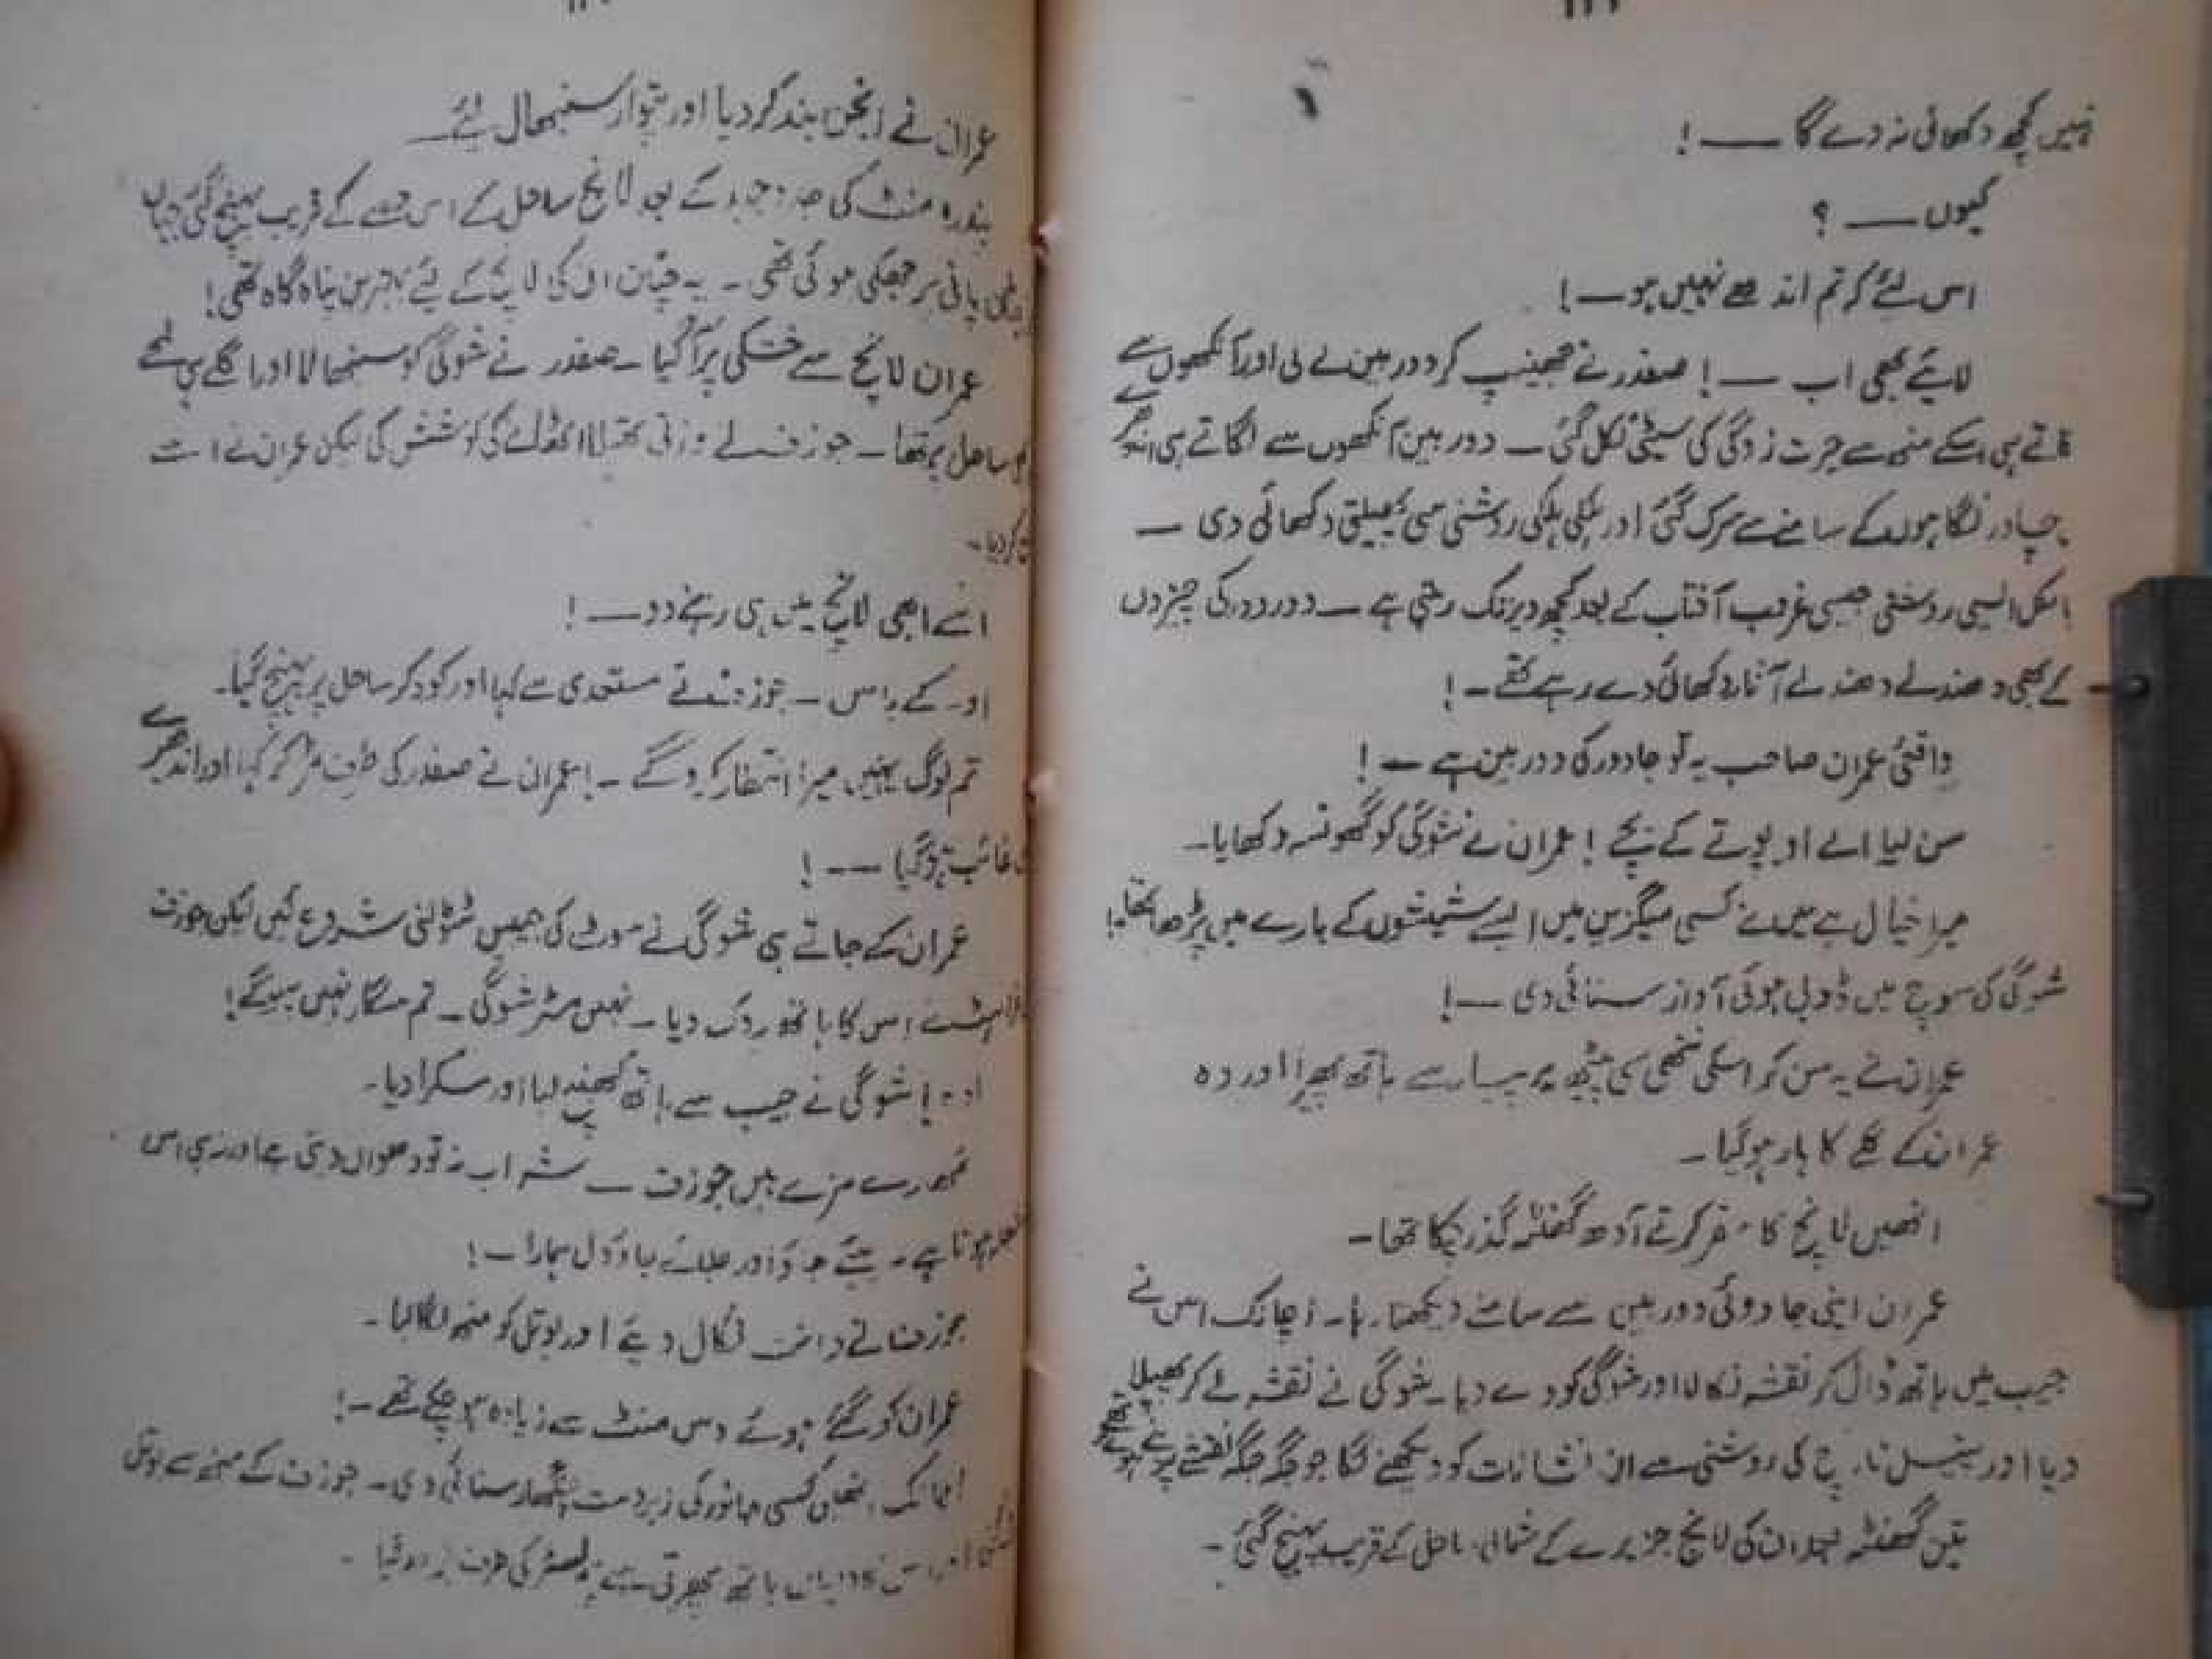 نہیں کچھ دکھائی نہ دے گا ——!
کیوں —— ؟
اس لئے کہ تم اندھے نہیں ہو —!
لائیے بھی اب —! صفدر نے جھینپ کر دوربین لے لی اور آنکھوں سے
ہی اسکے منہ سے حیرت زدگی کی سیٹی نکل گئی — دوربین آنکھوں سے لگاتے ہی
چادر نگاہوں کے سامنے سے سرک گئی اور ہلکی ہلکی روشنی سی پھیلتی دکھائی دی —
ایسی روشنی جیسی غروب آفتاب کے بعد کچھ دیر تک رہتی ہے — دور دور کی چیزوں
کے بھی دھندلے دھندلے آثار دکھائی دے رہے تھے —!
واقعی عمران صاحب یہ تو جادو کی دوربین ہے —!
سن لیا ابے او بوتے کے بچے ! عمران نے شوگی کو گھونسہ دکھایا۔
میرا خیال ہے میں نے کسی میگزین میں ایسے شیشوں کے بارے میں پڑھا تھا!
شوگی کی سوچ میں ڈوبی ہوئی آواز سنائی دی —!
عمران نے یہ سن کر اسکی ننھی سی پیٹھ پر پیار سے ہاتھ پھیرا اور وہ
عمران کے گلے کا ہار ہو گیا۔
انھیں لانچ کا سفر کرتے آدھ گھنٹہ گذر چکا تھا —
عمران اپنی جادوئی دوربین سے سامنے دیکھتا رہا۔ اچانک اس نے
جیب میں ہاتھ ڈال کر نقشہ نکالا اور شوگی کو دے دیا۔ شوگی نے نقشہ لے کر پھیلا
دیا اور پنسل ٹارچ کی روشنی سے ان نشانات کو دیکھنے لگا جو جگہ جگہ نقشے پر بنے ہوئے تھے
تین گھنٹہ بعد ان کی لانچ جزیرے کے شمالی ساحل کے قریب پہنچ گئی —
عمران نے انجن بند کر دیا اور پتوار سنبھال لئے —
پندرہ منٹ کی جدوجہد کے بعد لانچ ساحل کے اس حصے کے قریب پہنچ گئی جہاں
پانی پر جھکی ہوئی تھی — یہ چٹان ان کی لانچ کے لئے بہترین پناہ گاہ تھی!
عمران لانچ سے خشکی پر آ گیا — صفدر نے شوگی کو سنبھالا اور اگلے ہی لمحے
ساحل پر تھا — جوزف نے وزنی تھیلا اٹھانے کی کوشش کی لیکن عمران نے اسے
کر دیا —
اسے ابھی لانچ میں ہی رہنے دو —!
او۔ کے باس — جوزف نے مستعدی سے کہا اور کود کر ساحل پر پہنچ گیا۔
تم لوگ یہیں میرا انتظار کرو گے —! عمران نے صفدر کی طرف مڑ کر کہا اور اندھیرے
غائب ہو گیا ——!
عمران کے جاتے ہی شوگی نے سوٹ کی جیبیں ٹٹولنی شروع کیں لیکن جوزف
نے اس کا ہاتھ روک دیا — نہیں مسٹر شوگی — تم سگار نہیں پیوگے!
اوہ ! شوگی نے جیب سے ہاتھ کھینچ لیا اور مسکرا دیا۔
تمہارے مزے ہیں جوزف — شراب نہ تو دھواں دیتی ہے اور نہ ہی اس
ہوتا ہے — پیئے جاؤ اور جلائے جاؤ دل ہمارا —!
جوزف نے دانت نکال دیئے اور بوتل کو منہ لگا لیا۔
عمران کو گئے ہوئے دس منٹ سے زیادہ ہو چکے تھے —!
اچانک انھیں کسی جانور کی زبردست چنگھاڑ سنائی دی — جوزف کے منہ سے بوتل
ہاتھ پھرتی سے ہولسٹر کی طرف